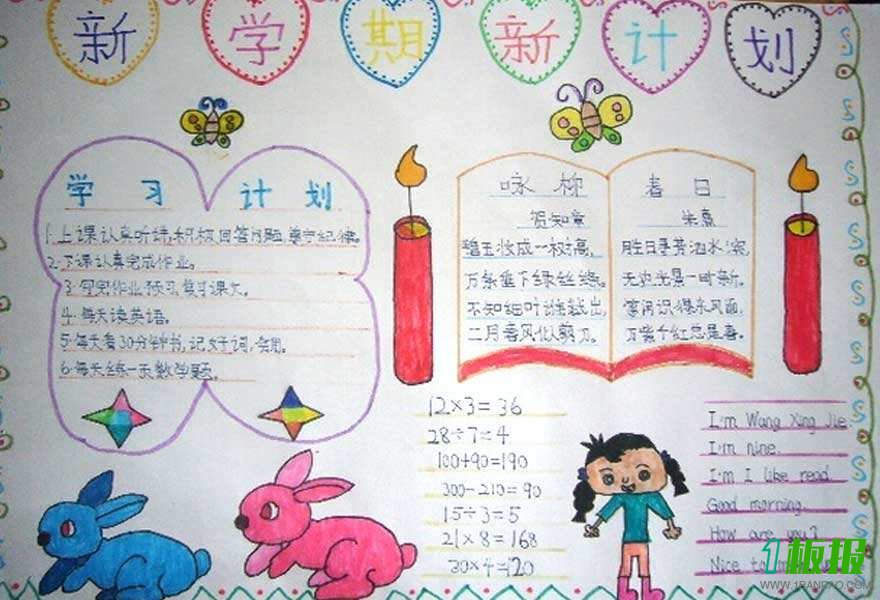 新学期新计划
学习计划
1.上课认真听讲,积极回答问题,遵守纪律。
2.下课认真完成作业。
3.写完作业预习,复习课文。
4.每天读英语。
5.每天看30分钟书,记好词,好句。
6.每天练一页数学题。
咏柳
贺知章
碧玉妆成一树高,
万条垂下绿丝绦。
不知细叶谁裁出,
二月春风似剪刀。
春日
朱熹
胜日寻芳泗水滨,
无边光景一时新。
等闲识得东风面,
万紫千红总是春。
12×3=36
28÷7=4
100+90=190
300-210=90
15÷3=5
21×8=168
30×4=120
I'm Wang Xing Jie.
I'm nine.
I'm I like read
Good morning
How are you?
Nice to
1板报
WWW.1BANBAO.COM